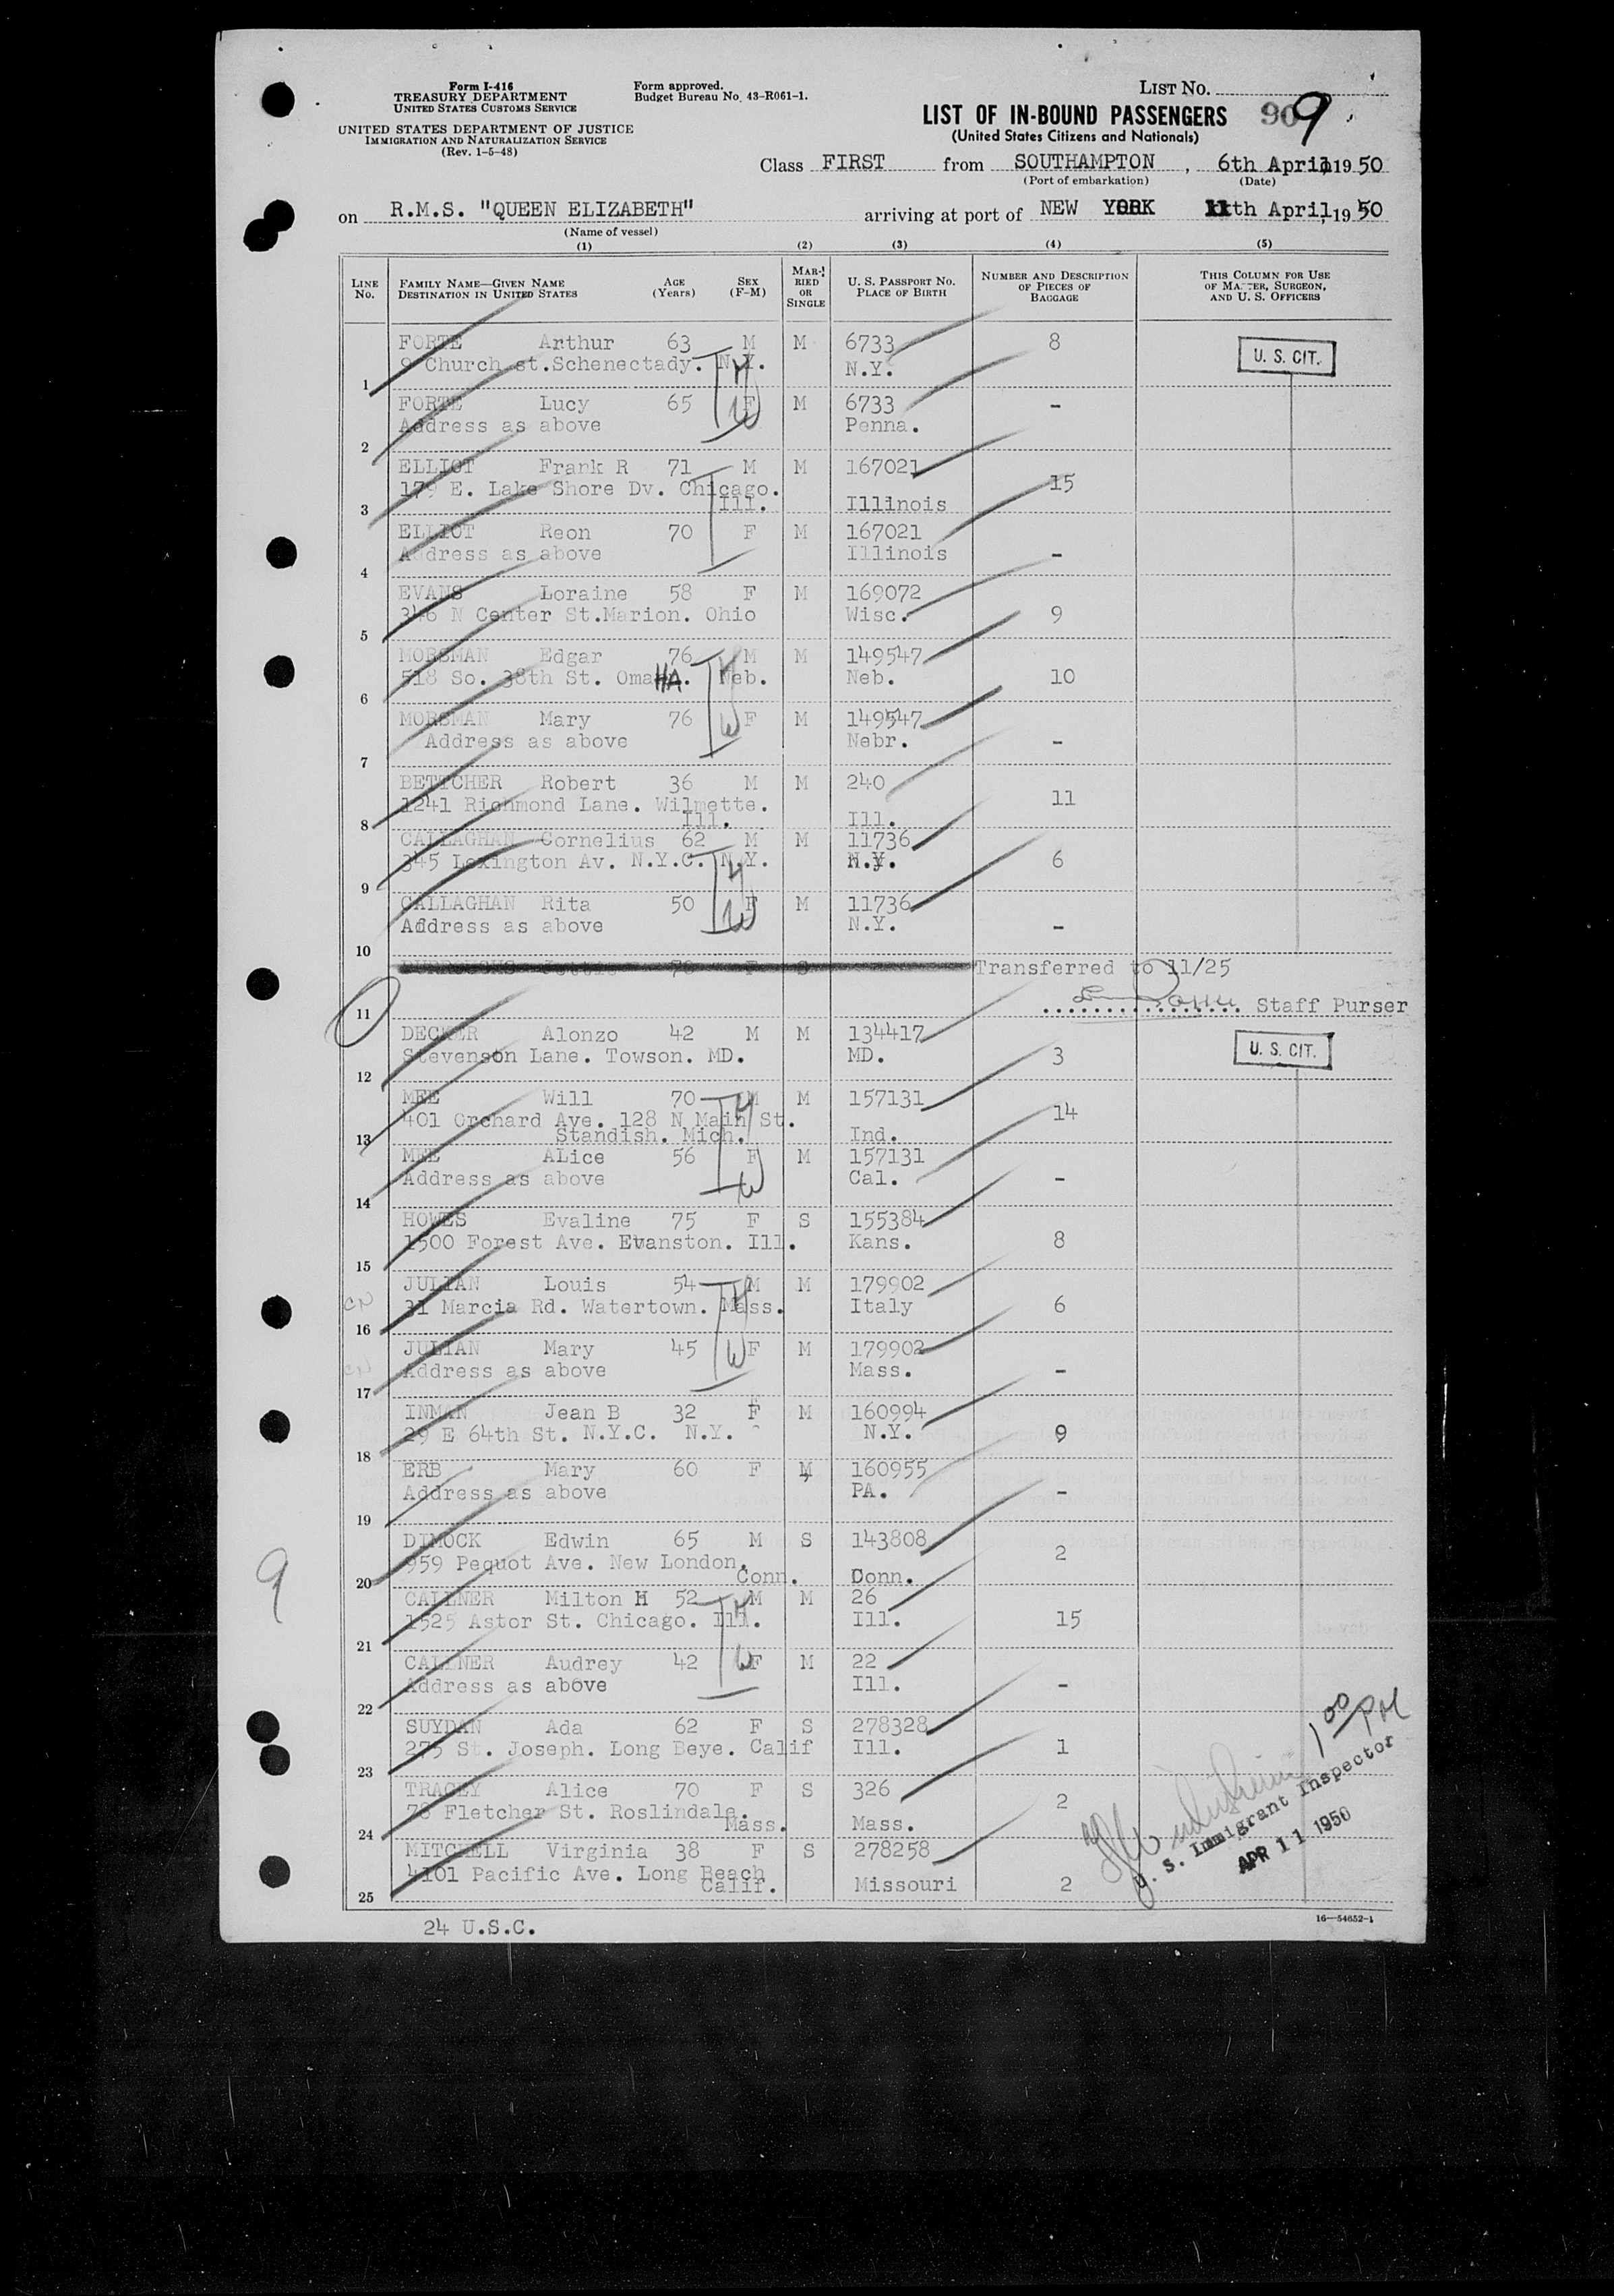 Form I-416
TREASURY DEPARTMENT
UNITED STATES CUSTOMS SERVICE
UNITED STATES DEPARTMENT OF JUSTICE
IMMIGRATION AND NATURALIZATION SERVICE
(Rev. 1-5-48)
Form approved.
Budget Bureau No. 43-R061-1.
LIST NO.
LIST OF IN-BOUND PASSENGERS 9
(United States Citizens and Nationals)
Class FIRST from SOUTHAMPTON, 6th April, 1950
(Port of embarkation) (Date)
on R.M.S. "QUEEN ELIZABETH" arriving at port of NEW YORK 11th April, 1950
(Name of vessel)
(1) (2) (3) (4) (5)
LINE NO. FAMILY NAME—GIVEN NAME DESTINATION IN UNITED STATES AGE (Years) SEX (F-M) MARRIED OR SINGLE U. S. PASSPORT NO. PLACE OF BIRTH NUMBER AND DESCRIPTION OF PIECES OF BAGGAGE THIS COLUMN FOR USE OF MASTER, SURGEON, AND U. S. OFFICERS
FORTE Arthur 63 M M 6733 8 U. S. CIT.
9 Church st.Schenectady. N.Y. N.Y.
1
FORTE Lucy 65 F M 6733 -
Address as above Penna.
2
ELLIOT Frank R 71 M M 167021 15
179 E. Lake Shore Dv. Chicago.
Ill. Illinois
3
ELLIOT Reon 70 F M 167021
Address as above Illinois -
4
EVANS Loraine 58 F M 169072
346 N Center St.Marion. Ohio Wisc. 9
5
MORSMAN Edgar 76 M M 149547
518 So. 38th St. OmaHA. Neb. Neb. 10
6
MORSMAN Mary 76 F M 149547
Address as above Nebr. -
7
BETTCHER Robert 36 M M 240
1241 Richmond Lane. Wilmette. 11
Ill. Ill.
8
CALLAGHAN Cornelius 62 M M 11736
345 Lexington Av. N.Y.C. N.Y. N.Y. 6
9
CALLAGHAN Rita 50 F M 11736
Address as above N.Y. -
10
Transferred to 11/25
11 Staff Purser
DECKER Alonzo 42 M M 134417 U. S. CIT.
Stevenson Lane. Towson. MD. MD. 3
12
MEE Will 70 M M 157131
401 Orchard Ave. 128 N Main St. 14
Standish. Mich. Ind.
13
MEE ALice 56 F M 157131
Address as above Cal. -
14
HOWES Evaline 75 F S 155384
1500 Forest Ave. Evanston. Ill. Kans. 8
15
JULIAN Louis 54 M M 179902
CN 31 Marcia Rd. Watertown. Mass. Italy 6
16
JULIAN Mary 45 F M 179902
CN Address as above Mass. -
17
INMAN Jean B 32 F M 160994
29 E 64th St. N.Y.C. N.Y. N.Y. 9
18
ERB Mary 60 F M 160955
Address as above PA. -
19
DIMOCK Edwin 65 M S 143808
959 Pequot Ave. New London. 2
Conn. Conn.
20
9
CALLNER Milton H 52 M M 26
1525 Astor St. Chicago. Ill. Ill. 15
21
CALLNER Audrey 42 F M 22
Address as above Ill. -
22
SUYDAN Ada 62 F S 278328
275 St. Joseph. Long Beye. Calif Ill. 1
23
TRACEY Alice 70 F S 326
78 Fletcher St. Roslindale. 2
Mass. Mass.
24
MITCHELL Virginia 38 F S 278258
4101 Pacific Ave. Long Beach
Calif. Missouri 2
25
1 00 PM
U. S. Immigrant Inspector
APR 11 1950
24 U.S.C.
16—54652-1